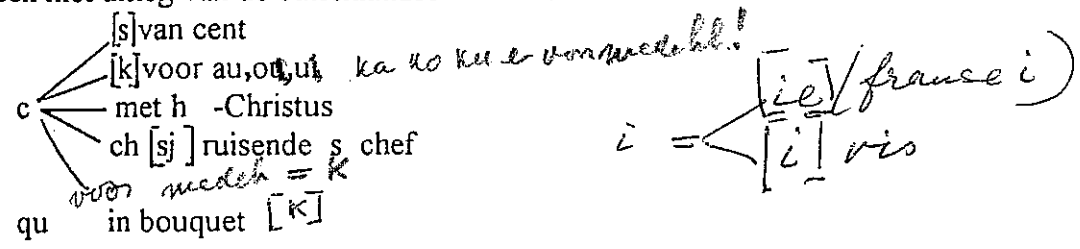 [s] van cent
[k] voor au,ou,ui, ka ko ku
c met h -Christus
ch [sj ] ruisende s chef
voor medekl = K
qu in bouquet [K]
i = [ie] (franse i)
[i] vis